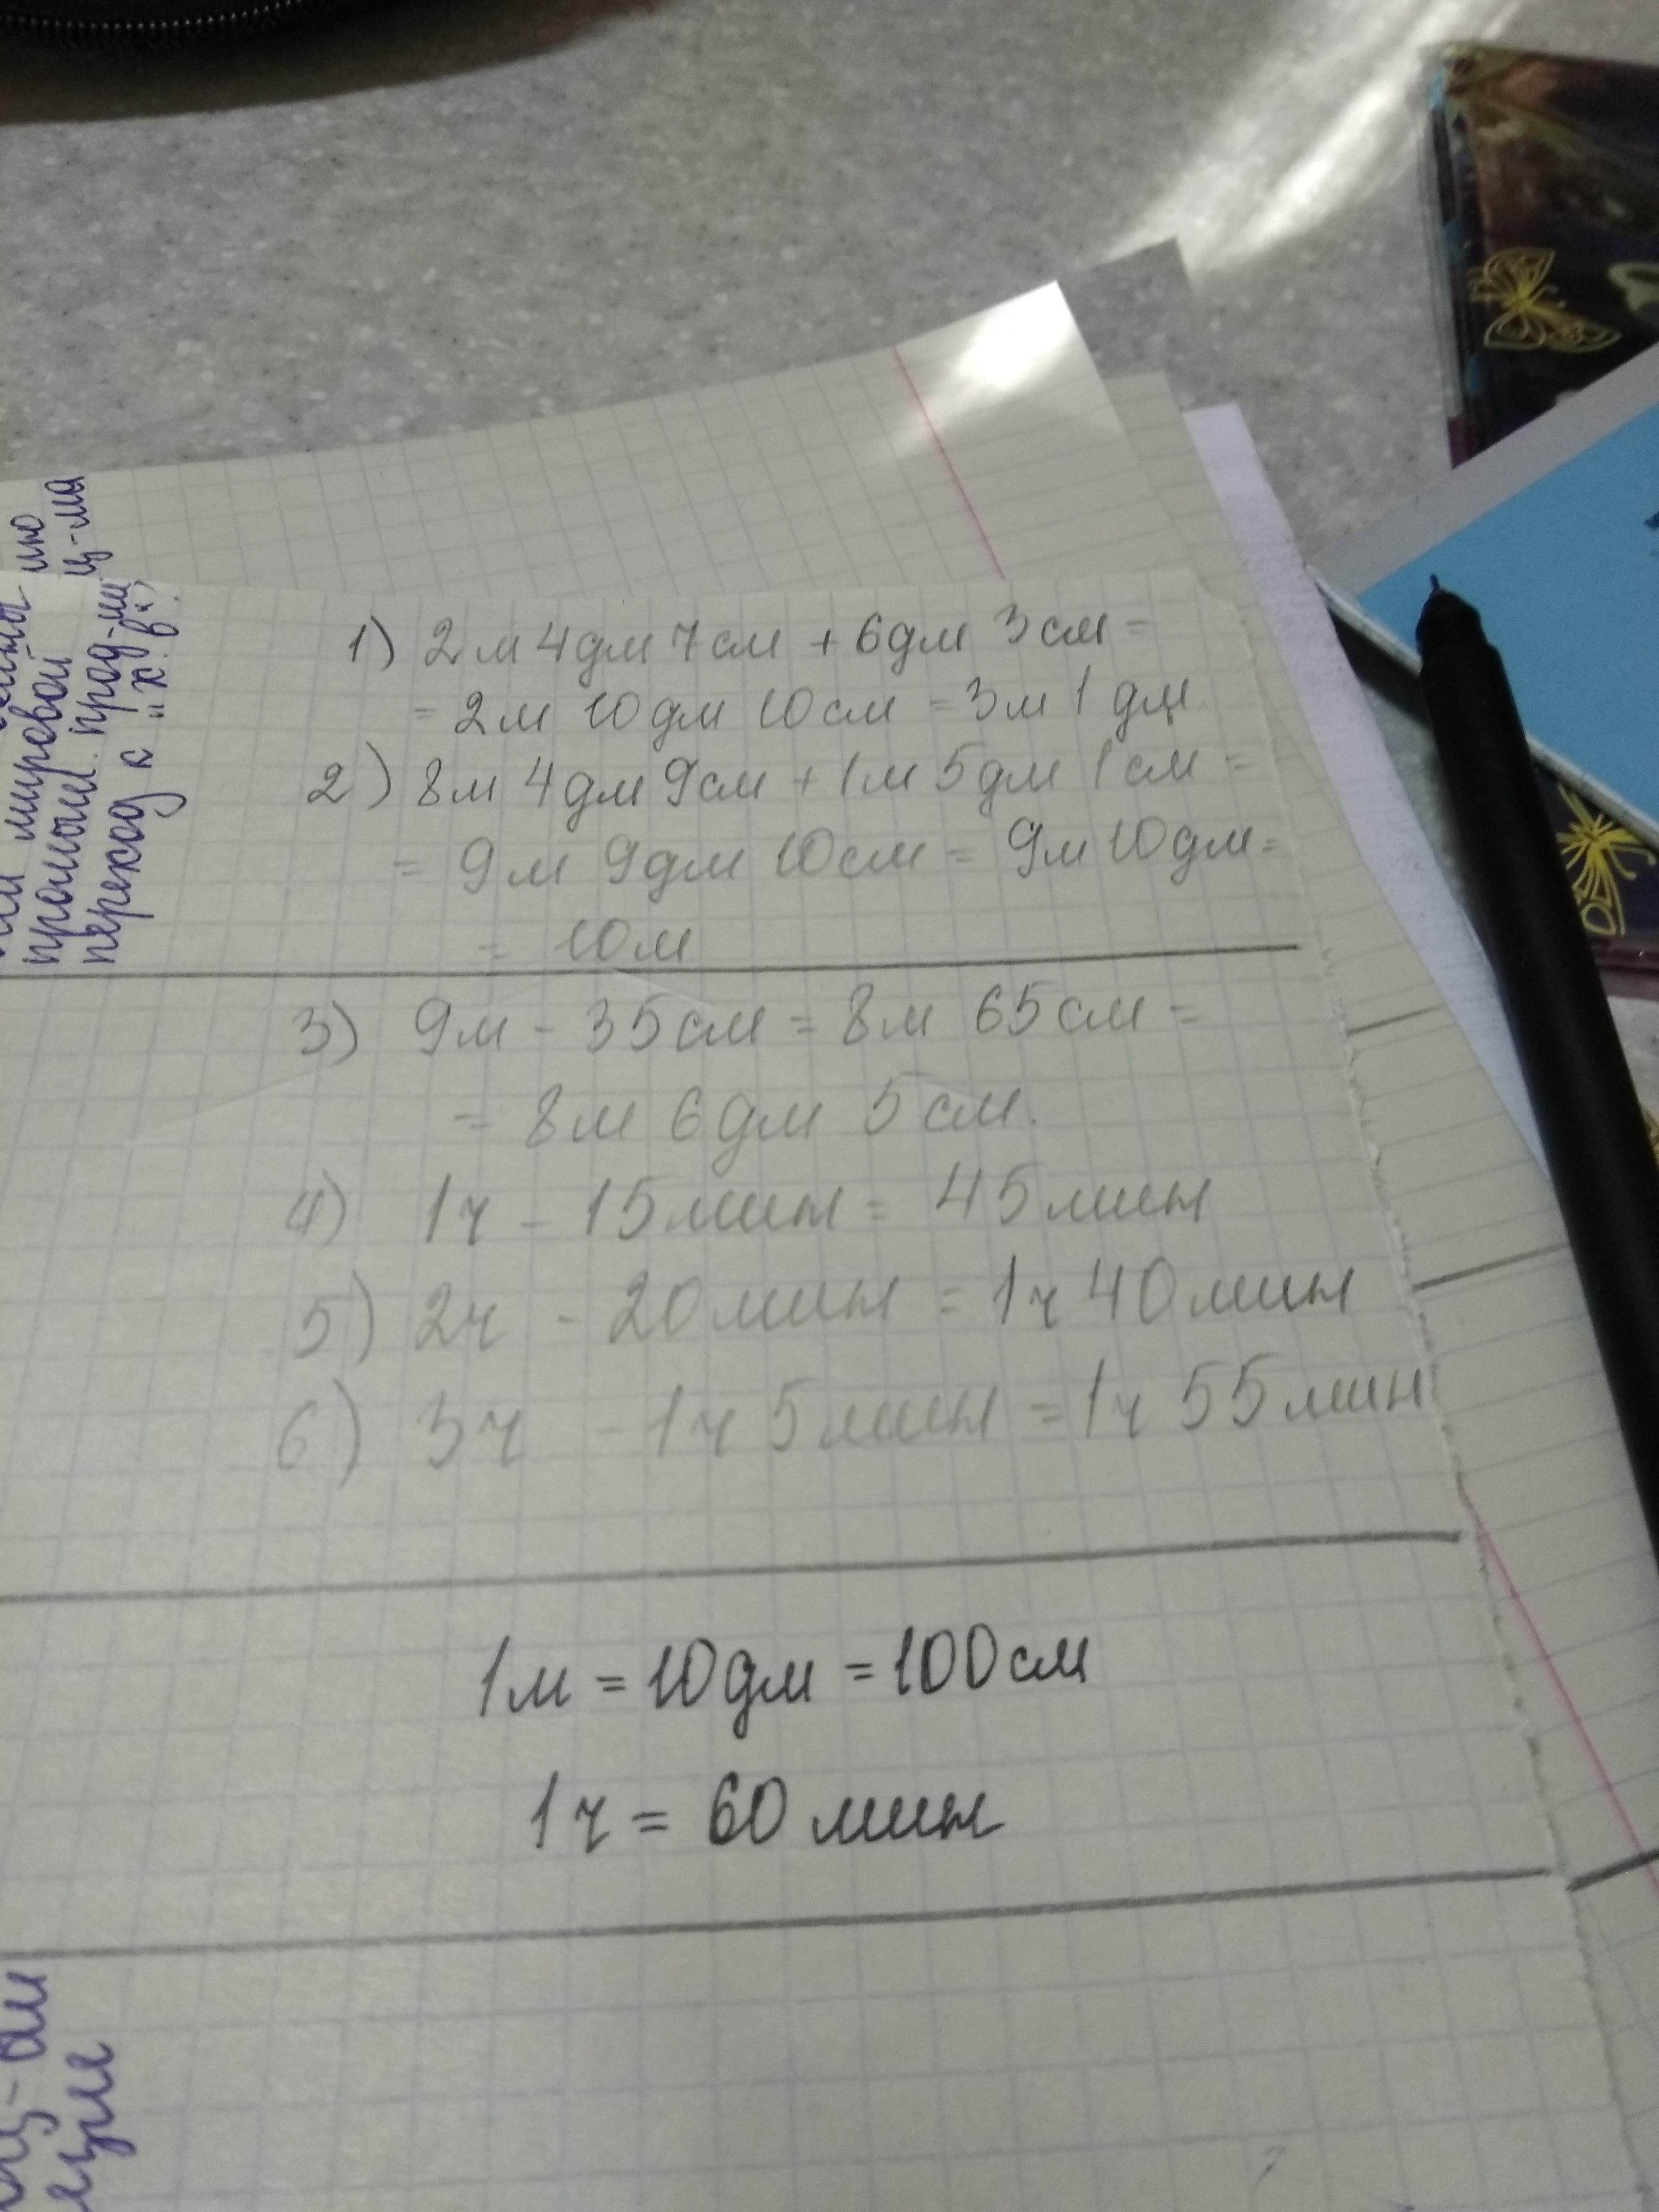 1) 2м 4дм 7см + 6дм 3см =
= 2м 10дм 10см = 3м 1дм
2) 8м 4дм 9см + 1м 5дм 1см =
= 9м 9дм 10см = 9м 10дм =
= 10м
3) 9м - 35см = 8м 65см =
= 8м 6дм 5см.
4) 1ч - 15мин = 45мин
5) 2ч - 20мин = 1ч 40мин
6) 3ч - 1ч 5мин = 1ч 55мин
1м = 10дм = 100см
1ч = 60 мин
мировой
промыш. прод-ии ц-ма
переход к "х. в",